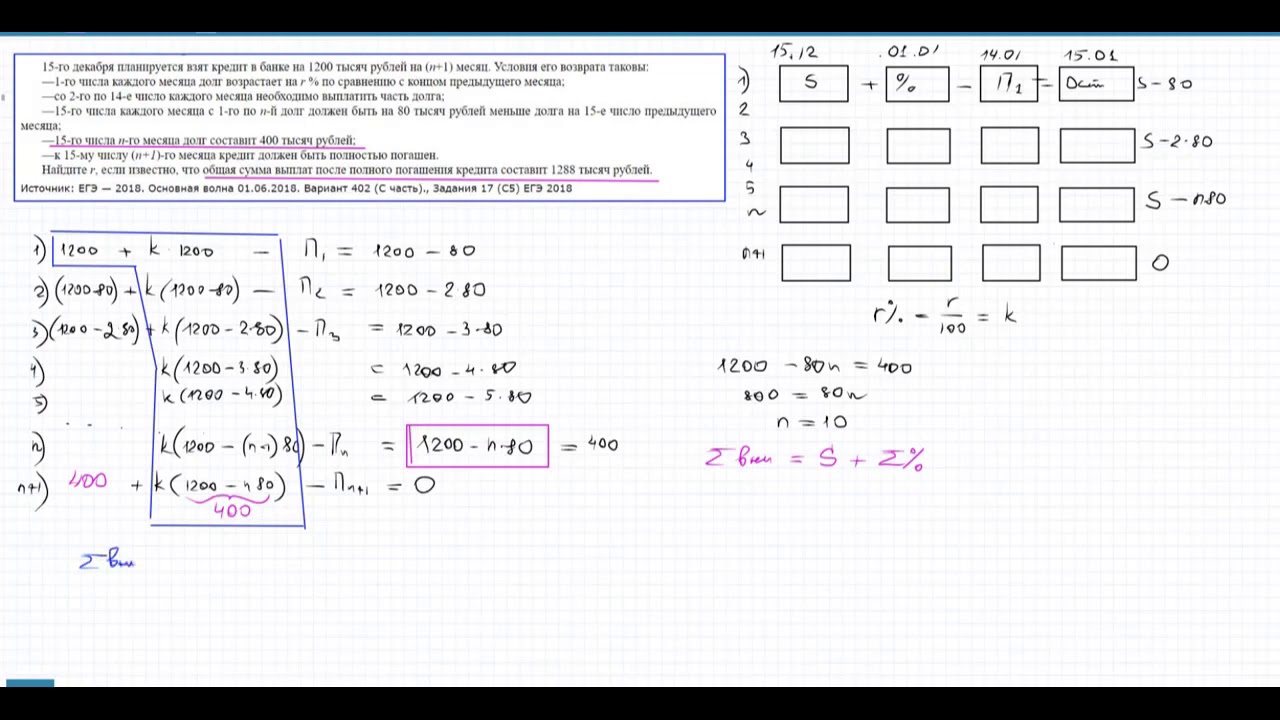 15-го декабря планируется взят кредит в банке на 1200 тысяч рублей на (n+1) месяц. Условия его возврата таковы:
—1-го числа каждого месяца долг возрастает на r % по сравнению с концом предыдущего месяца;
—со 2-го по 14-е число каждого месяца необходимо выплатить часть долга;
—15-го числа каждого месяца с 1-го по n-й долг должен быть на 80 тысяч рублей меньше долга на 15-е число предыдущего
месяца;
—15-го числа n-го месяца долг составит 400 тысяч рублей;
—к 15-му числу (n+1)-го месяца кредит должен быть полностью погашен.
Найдите r, если известно, что общая сумма выплат после полного погашения кредита составит 1288 тысяч рублей.
Источник: ЕГЭ — 2018. Основная волна 01.06.2018. Вариант 402 (С часть)., Задания 17 (С5) ЕГЭ 2018
15.12 01.01 14.01 15.01
1) S + % — П1 = Ост S-80
2
3 S-2·80
4
5
n S — n80
n+1 0
r% — r/100 = k
1200 — 80n = 400
800 = 80n
n = 10
Σ вып = S + Σ%
1) 1200 + k·1200 — П1 = 1200 — 80
2) (1200-80) + k(1200-80) — П2 = 1200 — 2·80
3) (1200-2·80) + k(1200-2·80) — П3 = 1200-3·80
4) k(1200-3·80) = 1200-4·80
5) k(1200-4·80) = 1200-5·80
n) k(1200-(n-1)80) — Пn = 1200-n·80 = 400
n+1) 400 + k(1200-n80) — Пn+1 = 0
400
Σ вып